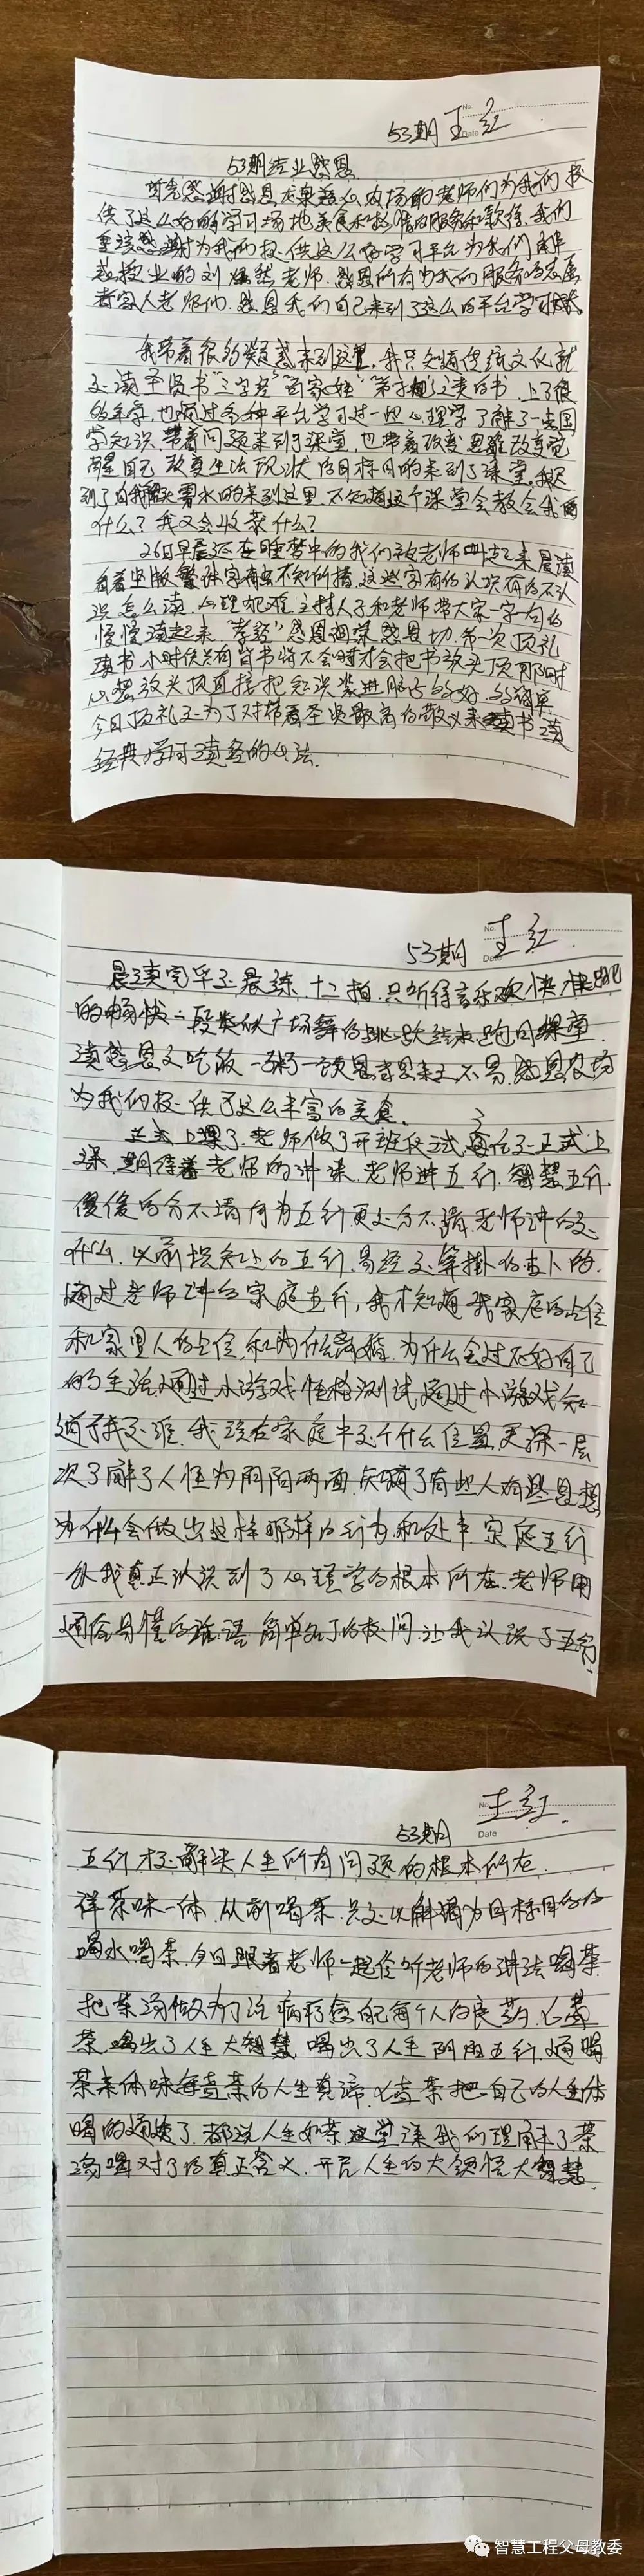 No.
Date
53期 王红
53期结业感恩
首先感谢感恩 农场的老师们为我们提
供了这么好的学习场地美食和热情的服务和款待.我们
重该感谢为我们提供这么好学习平台为我们
授业的刘 然老师.感恩所有为我们服务的志愿
者家人老师们.感恩我们自己来到了这么的平台学习
我带着很多疑惑来到这里.我只知道传统文化就
是读圣贤书"三字经""百家姓""弟子规"之类的书.上了很
多年学,也通过各种平台学习过一些心理学了解了一些国
学知识.带着问题来到了课堂,也带着改变思维改变觉
醒自己 改变生活现状的目标目的来到了课堂.我
到了自我 的来到这里不知道这个课堂会教会我们
什么?我又会收获什么?
26日早晨还在睡梦中的我们被老师叫起来晨读
看着竖版繁体字有些不知所措.这些字有的认识有的不认
识怎么读.心理犯难.主持人和老师带大家一字一句的
慢慢读起来."孝经"感恩词条感恩一切.第一次顶礼
读书.小时候只有背书背不会时才会把书放头顶那时
心想放头顶直接把知识装进脑子多好.多简单
今日顶礼是为了对带着圣贤最高的敬义来读书读
经典学习读经的心法.
No.
Date
53期 王红.
晨读完毕是晨练.十二拍.只听得音乐欢快
的畅快二段类似广场舞的跳跃结束跑回课堂.
读感恩文吃饭一粥一饭思来之不易.感恩农场
为我们提供了这么丰富的美食.
正式上课了.老师做了开班仪试 正式上
课.期待着老师的讲课.老师讲五行.智慧五行.
傻傻的分不清何为五行更是分不清老师讲的是
什么.以前认知上的五行.易经是算掛的占卜的.
通过老师讲的家庭五行,我才知道我家庭的占位
和家里人的占位,和为什么离婚.为什么会过不好自己
的生活.通过小游戏性格测试.通过小游戏知
道了我是谁.我该在家庭中是个什么位置.更深一层
次了解了人性为阴阳两面.知晓了有些人有些思想
为什么会做出这样那样的行为.和处事.家庭五行
从我真正认识到了心理学的根本所在.老师用
通俗易懂的话语.简单 的校问.让我认识了五行.
No.
Date
53期 王红.
五行才是解决人生所有问题的根本所在.
禅茶味一体.从前喝茶.只是以解渴为目标目的的
喝水喝茶.今日跟着老师一起 听老师的讲法喝茶
把茶汤做为了治病疗愈配每个人的良药.七 
茶.喝出了人生大智慧.喝出了人生阴阳五行.通喝
茶来体味每壶茶的人生真谛.七壶茶把自己的人生
喝的通透了.都说人生如茶.这堂课我们理解了茶
汤喝对了的真正含义.开启人生的大领悟大智慧.
智慧工程父母教委